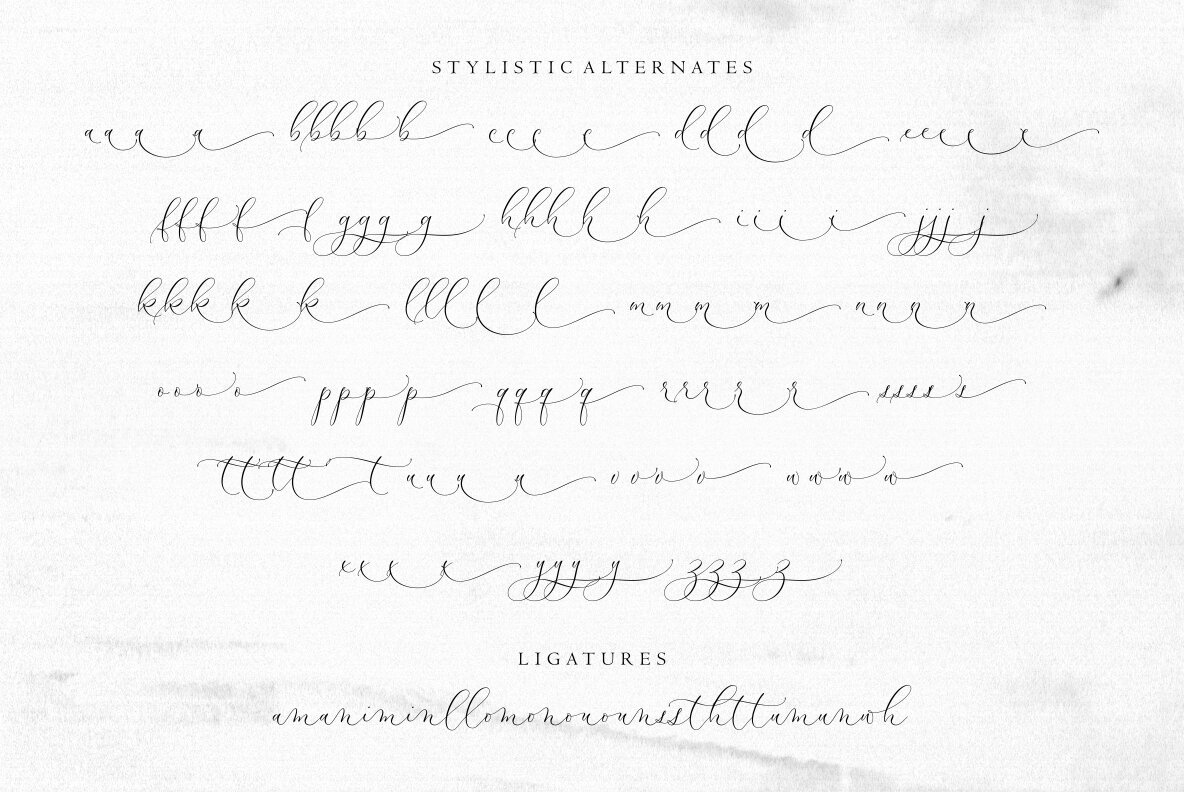 STYLISTIC ALTERNATES
aaa a bbbb b ccc c ddd d eeee e
fff f f ggg g hhh h h iii i jjj j
kkk k k lll l l mm m m nnn n
ooo o ppp p qqq q rrr r r ssss s
tttt t uuu u vvv v www w
xxx x yyy y zzz z
LIGATURES
amaniminllomonouounssthttumunwh